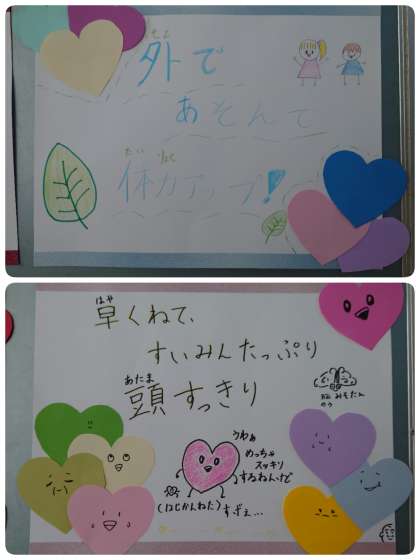 そと
外で
あそんで
たい りょく
体力アップ!
はや
早くねて、
すいみんたっぷり
あたま
頭すっきり
脳みそたん
のう
うわぁ
めっちゃ
スッキリ
するねんけど
すげぇ…